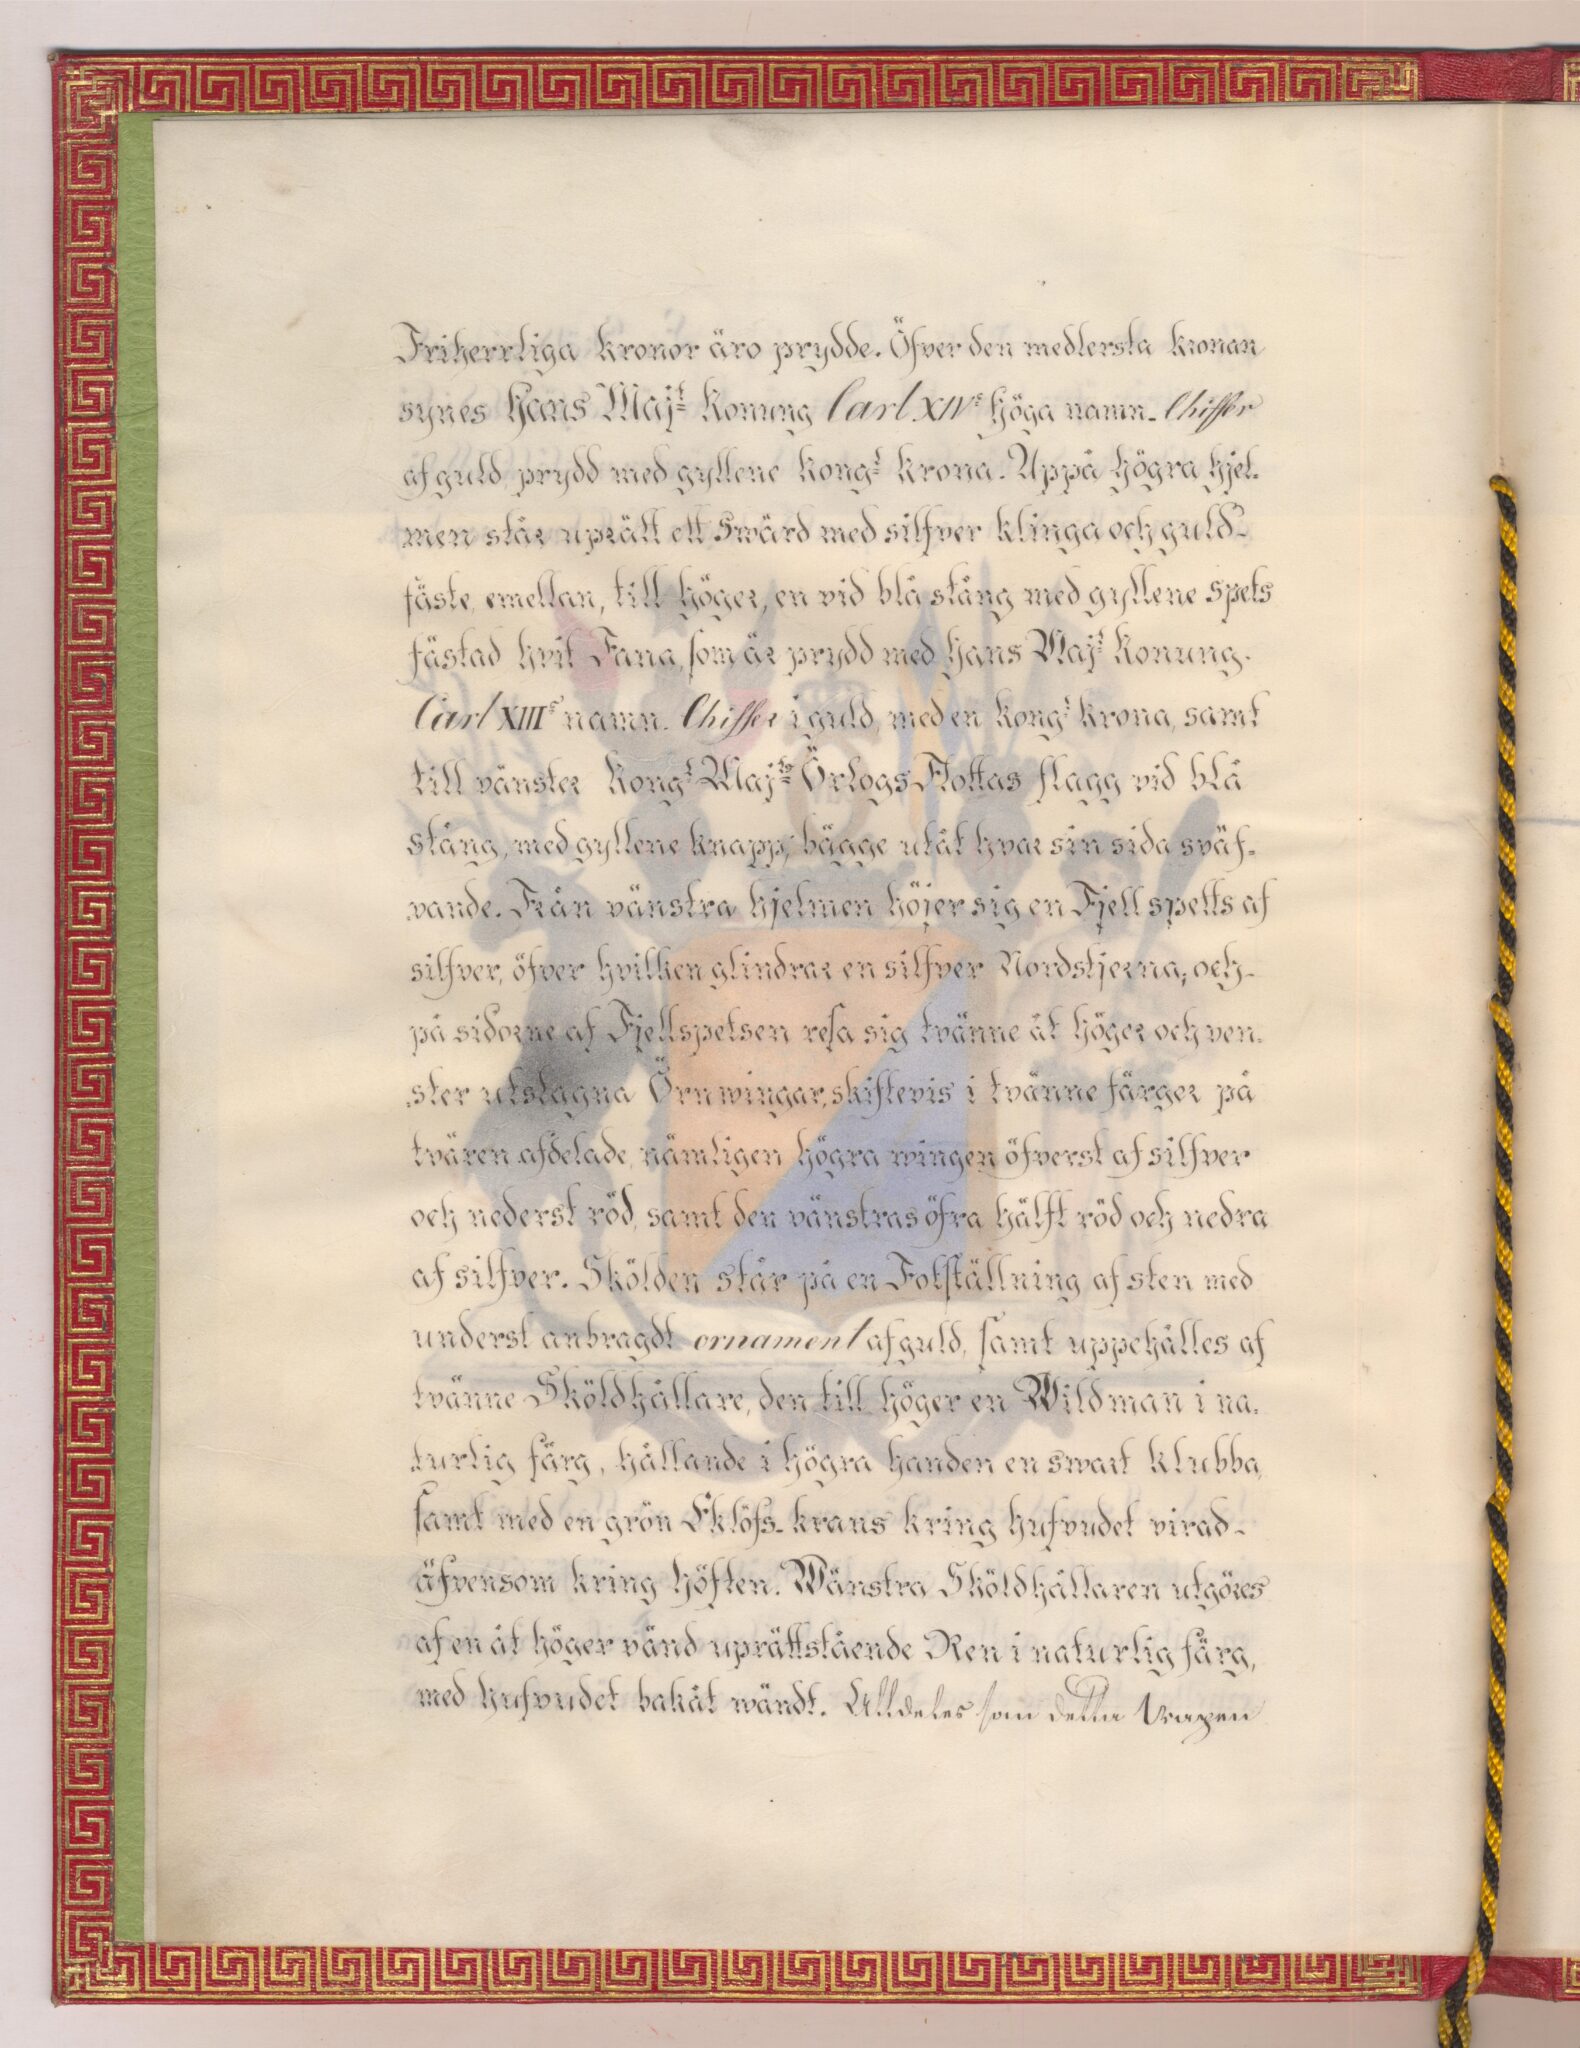 Friherrliga Kronor äro prydde. Öfver den medlersta Kronan
synes Hans Majt Konung Carl XIVs höga namn-Chiffer
af guld, prydd med gyllene Kongl Krona. Uppå högra hjel-
men står uprätt ett Swärd med silfver klinga och guld-
fäste, emellan, till höger, en vid blå stång med gyllene spets
fästad hvit Fana, som är prydd med Hans Majt Konung
Carl XIIIs namn-Chiffer i guld, med en Kongl Krona, samt
till vänster Kongl Majts Örlogs Flottas flagg vid blå
stång, med gyllene knapp, bägge utåt hvar sin sida sväf-
vande. Från vänstra hjelmen höjer sig en Fjell spetts af
silfver, öfver hvilken glindrar en silfver Nordstjerna, och
på sidorne af Fjellspetsen resa sig tvänne åt höger och ven-
ster utslagna Örnwingar, skiftevis i tvänne färger på
tvären afdelade, nämligen högra wingen öfverst af silfver
och nederst röd, samt den vänstras öfra hälft röd och nedra
af silfver. Skölden står på en Fotställning af sten med
underst anbragdt ornament af guld, samt uppehålles af
tvänne Sköldhållare, den till höger en Wildman i na-
turlig färg, hållande i högra handen en swart klubba,
samt med en grön Eklöfs-krans kring hufvudet virad-
äfvensom kring höften. Wänstra Sköldhållaren utgöres
af en åt höger vänd uprättstående Ren i naturlig färg,
med hufvudet bakåt wändt. Alldeles som detta Vapen